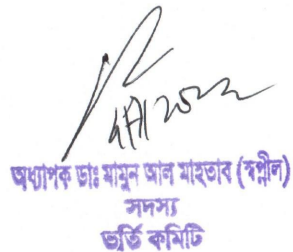 অধ্যাপক ডাঃ মামুন আল মাহতাব (স্বপ্নীল)
সদস্য
ভর্তি কমিটি